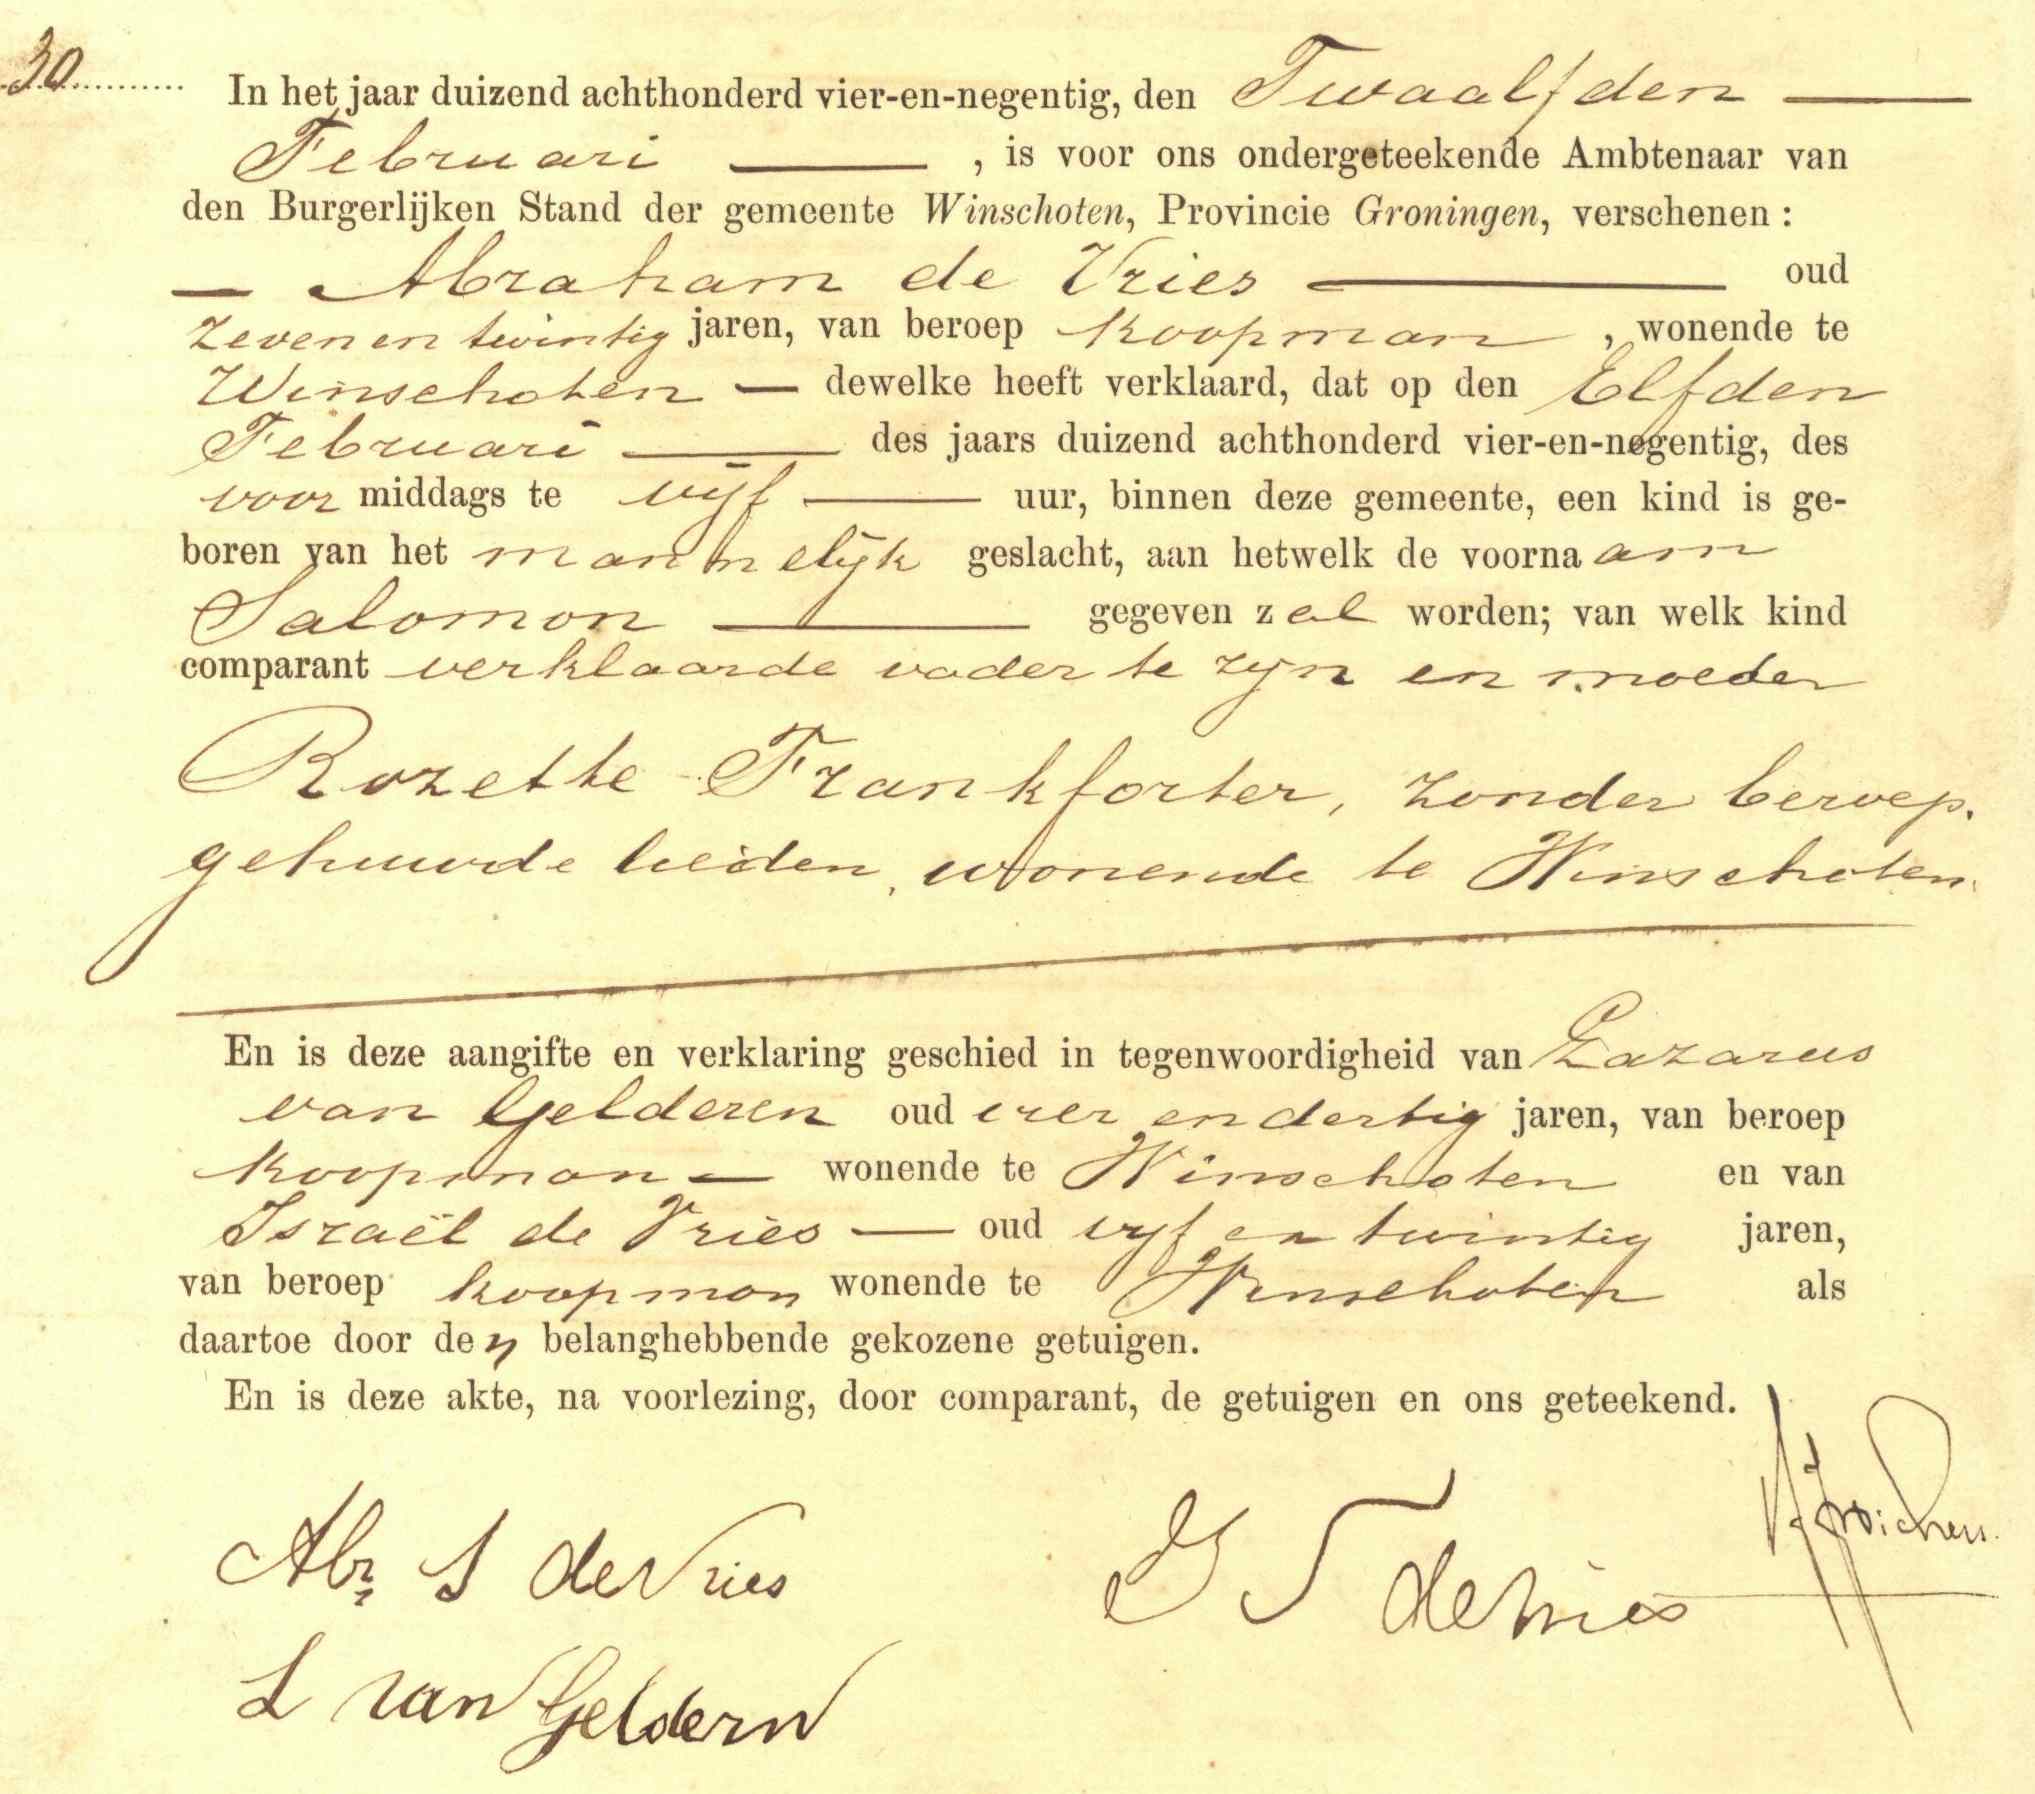 30
In het jaar duizend achthonderd vier-en-negentig, den Twaalfden
Februari, is voor ons ondergeteekende Ambtenaar van
den Burgerlijken Stand der gemeente Winschoten, Provincie Groningen, verschenen:
Abraham de Vries oud
zeven en twintig jaren, van beroep koopman, wonende te
Winschoten dewelke heeft verklaard, dat op den Elfden
Februari des jaars duizend achthonderd vier-en-negentig, des
voor middags te vijf uur, binnen deze gemeente, een kind is ge-
boren van het mannelijk geslacht, aan hetwelk de voornaam
Salomon gegeven zal worden; van welk kind
comparant verklaarde vader te zijn en moeder
Rozette Frankforter, zonder beroep.
gehuwde lieden, wonende te Winschoten.
En is deze aangifte en verklaring geschied in tegenwoordigheid van Lazarus
van Gelderen oud vier en dertig jaren, van beroep
koopman wonende te Winschoten en van
Israël de Vries oud vijf en twintig jaren,
van beroep koopman wonende te Winschoten als
daartoe door den belanghebbende gekozene getuigen.
En is deze akte, na voorlezing, door comparant, de getuigen en ons geteekend.
Abr S de Vries
de Vries
L van Geldern